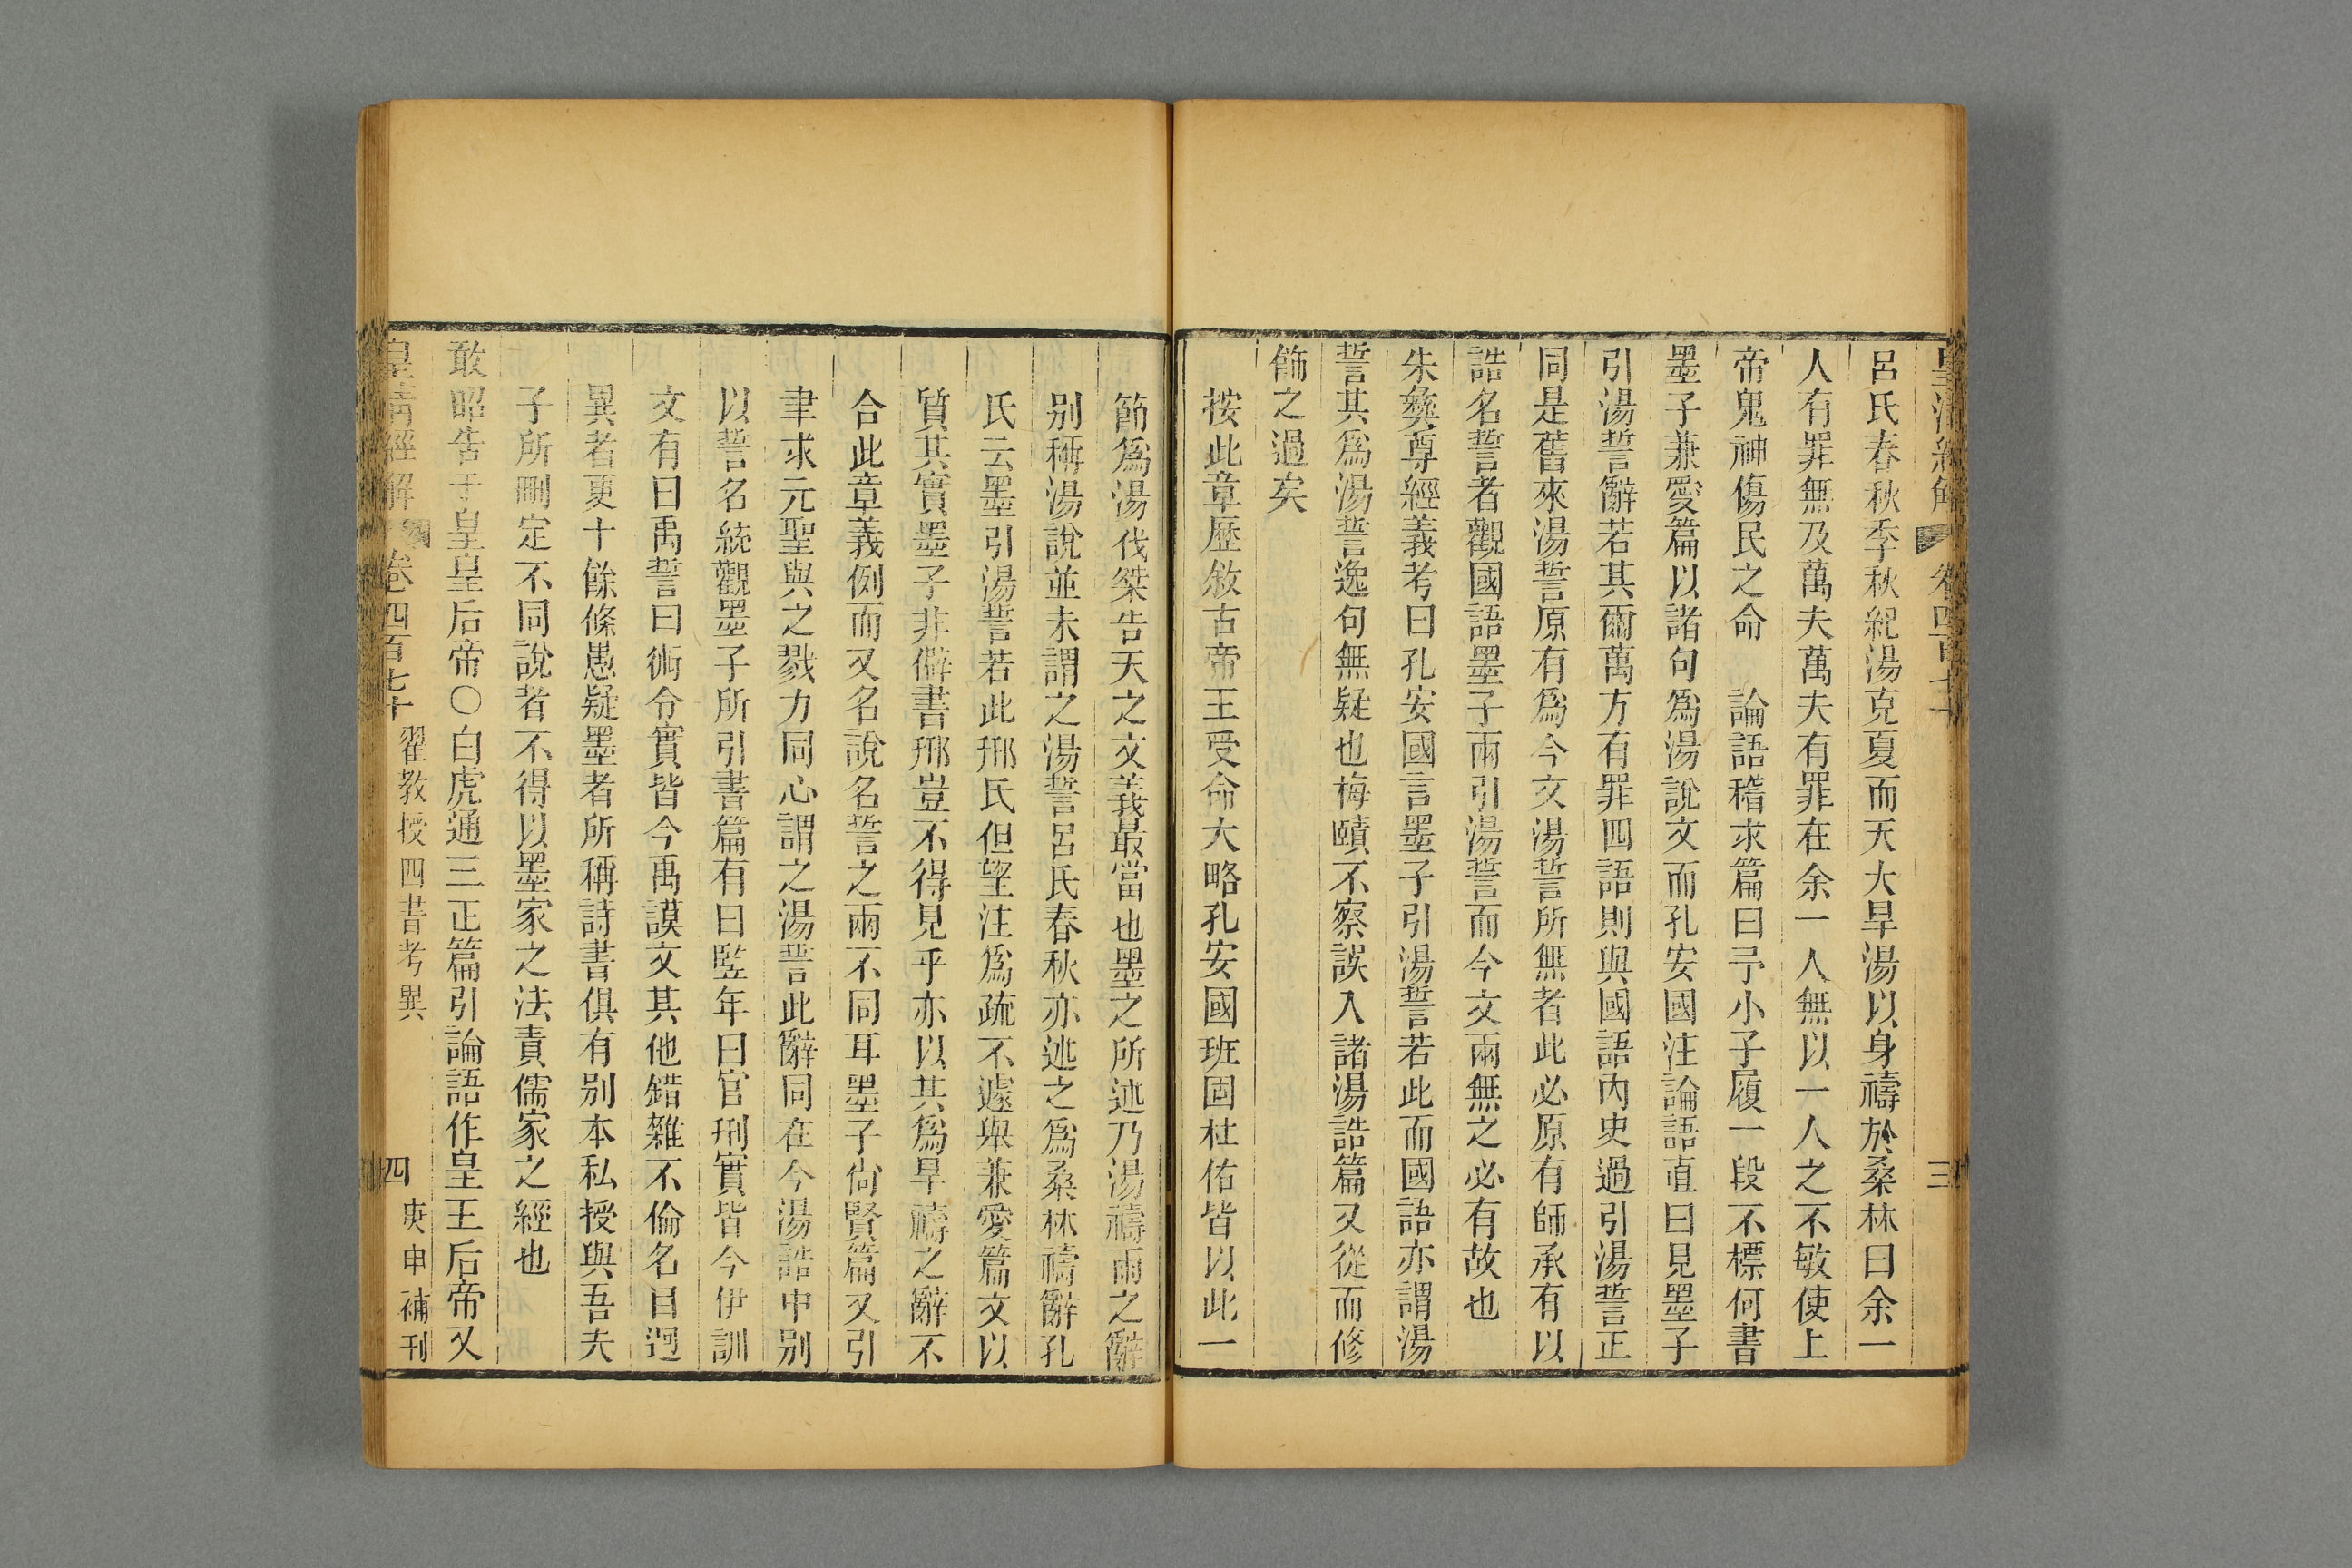 呂氏春秋季秋紀湯克夏而天大旱湯以身禱於桑林曰余一
人有罪無及萬夫萬夫有罪在余一人無以一人之不敏使上
帝鬼神傷民之命　論語稽求篇曰予小子履一段不標何書
墨子兼愛篇以諸句爲湯說文而孔安國注論語直曰見墨子
引湯誓辭若其爾萬方有罪四語則與國語內史過引湯誓正
同是舊來湯誓原有爲今文湯誓所無者此必原有師承有以
誥名誓者觀國語墨子兩引湯誓而今文兩無之必有故也
朱彝尊經義考曰孔安國言墨子引湯誓若此而國語亦謂湯
誓其爲湯誓逸句無疑也梅賾不察誤入諸湯誥篇又從而修
飾之過矣
按此章歷敘古帝王受命大略孔安國班固杜佑皆以此一
節爲湯伐桀告天之文義最當也墨之所述乃湯禱雨之辭
別稱湯說並未謂之湯誓呂氏春秋亦述之爲桑林禱辭孔
氏云墨引湯誓若此邢氏但望注爲疏不遽舉兼愛篇文以
質其實墨子非僻書邢豈不得見乎亦以其爲旱禱之辭不
合此章義例而又名說名誓之兩不同耳墨子尙賢篇又引
聿求元聖與之戮力同心謂之湯誓此辭同在今湯誥中別
以誓名統觀墨子所引書篇有曰監年曰官刑實皆今伊訓
文有曰禹誓曰術令實皆今禹謨文其他錯雜不倫名目迥
異者更十餘條愚疑墨者所稱詩書俱有別本私授與吾夫
子所刪定不同說者不得以墨家之法責儒家之經也
敢昭告于皇皇后帝〇白虎通三正篇引論語作皇王后帝又
皇清經解　卷四百七十　翟教授四書考異　四　庚申補刊